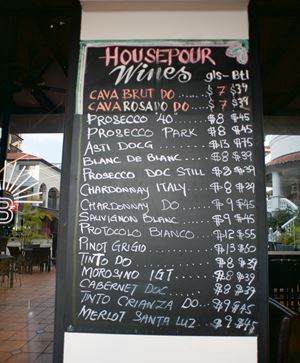 HOUSEPOUR
Wines gls- Btl
CAVA BRUT DO....$7 $39
CAVA ROSADO DO...$7 $39
PROSECCO '40 ... $8 $45
PROSECCO PARK... $8 $45
ASTI DOCG ... $13 $75
BLANC DE BLANC... $8 $39
PROSECCO DOC STILL $8 $39
CHARDONNAY ITALY... $8 $39
CHARDONNAY DO... $9 $45
SAUVIGNON BLANC... $9 $45
PROTOCOLO BIANCO... $12 $55
PINOT GRIGIO... $13 $60
TINTO DO ... $8 $39
MOROSINO IGT... $8 $39
CABERNET DOC... $8 $39
TINTO CRIANZA DO... $9 $45
MERLOT SANTA LUZ... $9 $45
B